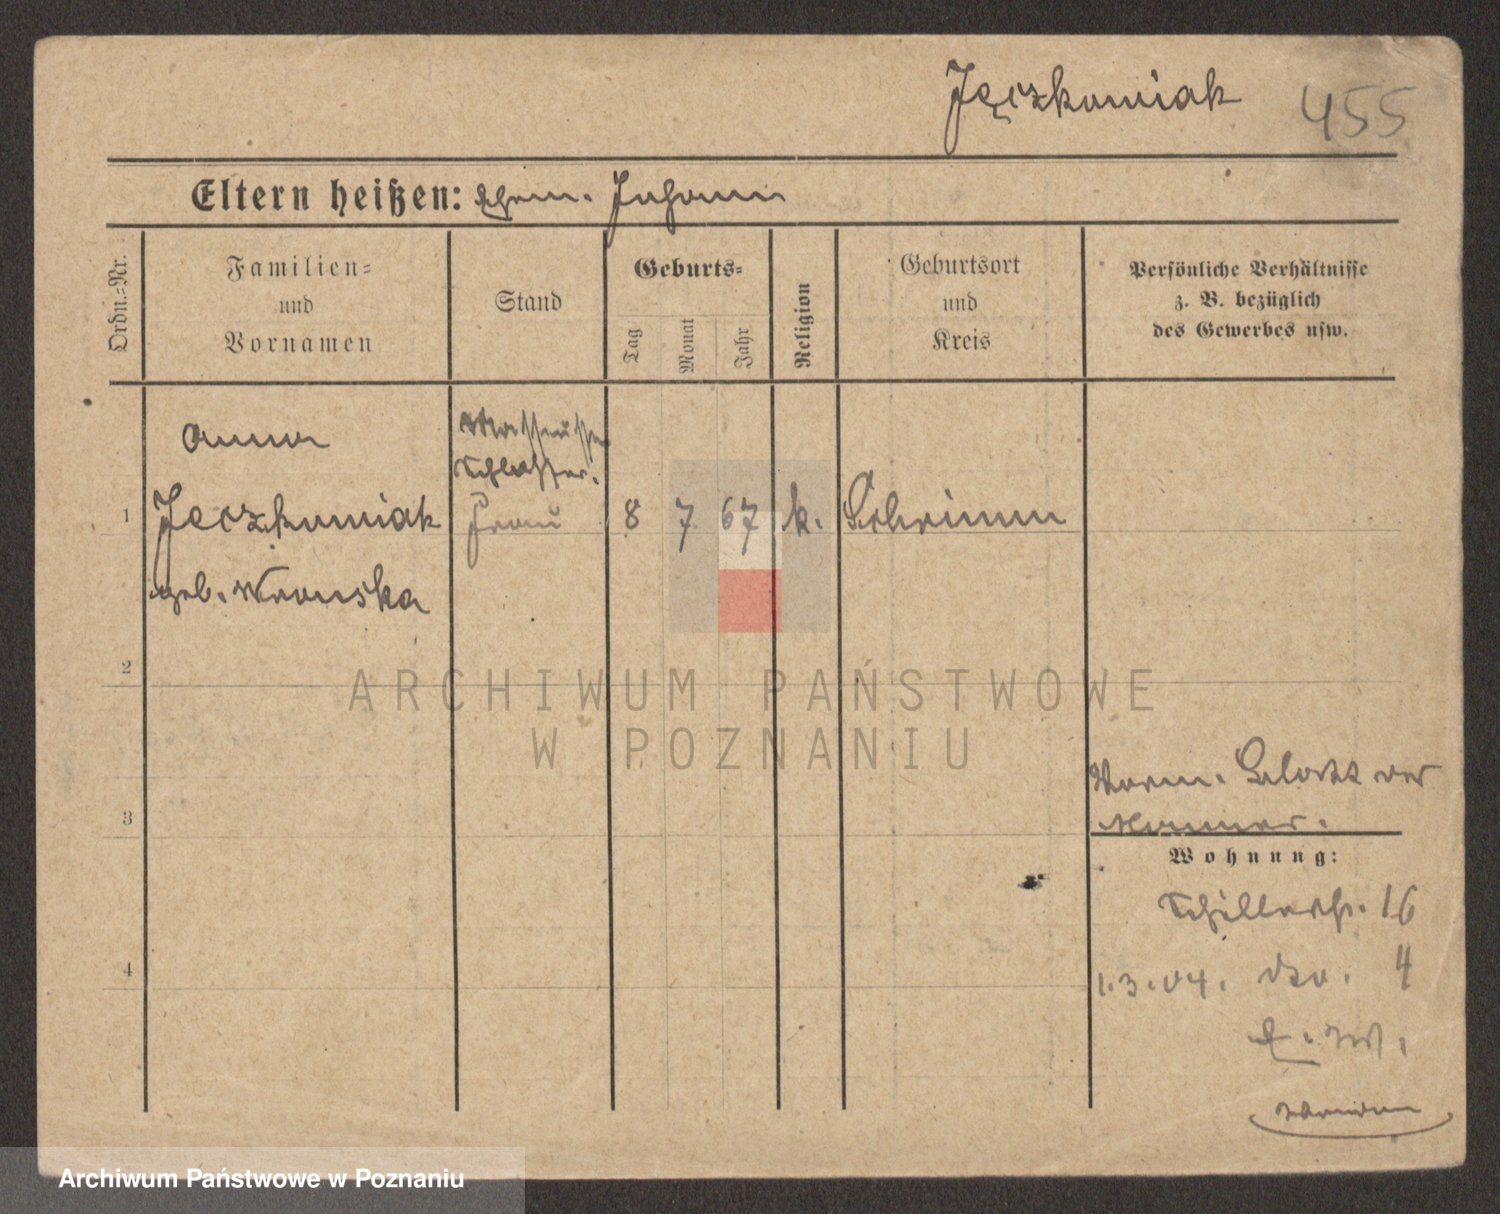 Jęczkowiak 455
Eltern heißen: Ehem. Johann
Ordn.-Nr.
Familien-
und
Vornamen
Stand
Geburts-
Tag
Monat
Jahr
Religion
Geburtsort
und
Kreis
Persönliche Verhältnisse
z. B. bezüglich
des Gewerbes usw.
Anna
Schlosser.
1 Jeczkowiak Frau 8 7 67 k. Schrimm
geb. Wronska
2
ARCHIWUM PAŃSTWOWE
W POZNANIU
3
Wohnung:
Schillerstr. 16
4
1.3.04. dso. 4
Archiwum Państwowe w Poznaniu